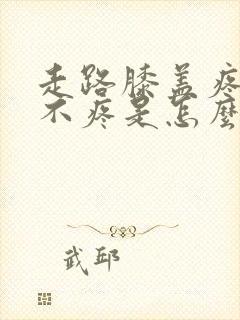 走路膝盖疼
不疼是怎麼
武邱